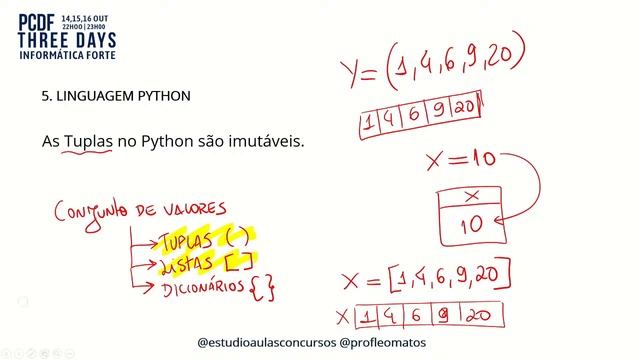 PCDF
14,15,16 OUT
22H00 | 23H00
THREE DAYS
INFORMÁTICA FORTE
5. LINGUAGEM PYTHON
As Tuplas no Python são imutáveis.
CONJUNTO DE VALORES
TUPLAS ( )
LISTAS [ ]
DICIONÁRIOS { }
Y = (1,4,6,9,20)
1 4 6 9 20
X = 10
X
10
X = [1,4,6,9,20]
X 1 4 6 9 20
@estudioaulasconcursos @profleomatos